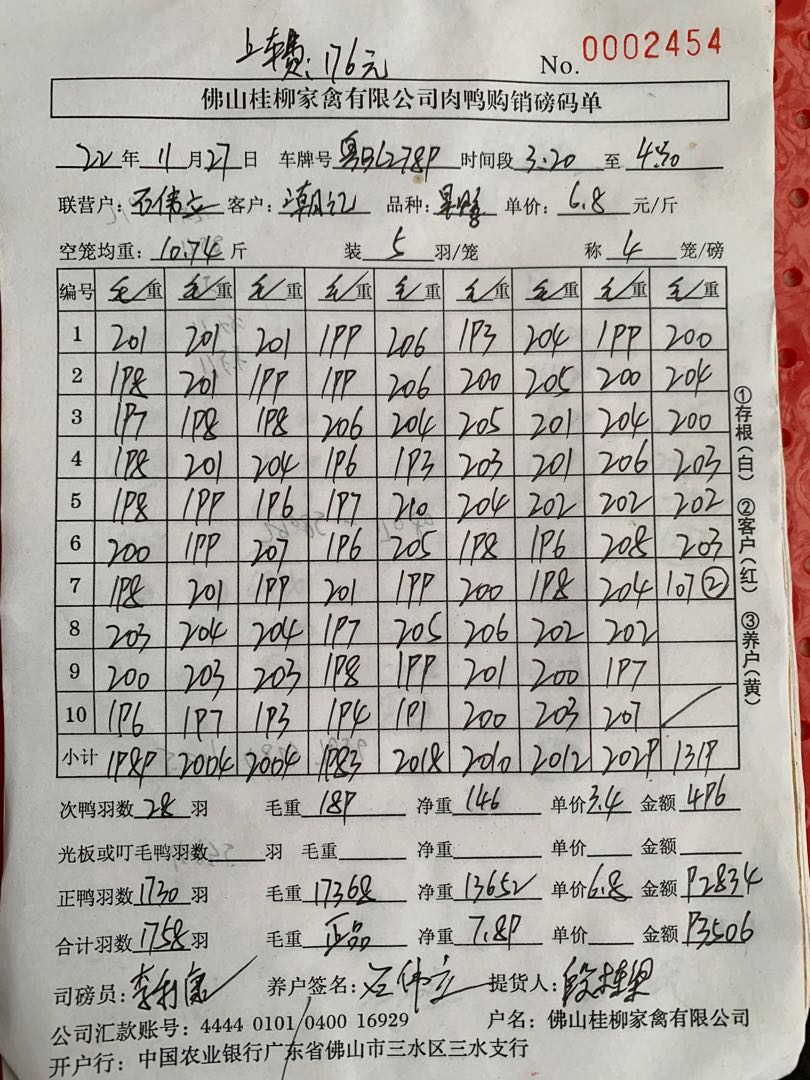 上车费: 176元
No. 0002454
佛山桂柳家禽有限公司肉鸭购销磅码单
22 年 11 月 27 日 车牌号 时间段 3:20 至 4:30
联营户: 石伟立 客户: 潮记 品种: 单价: 6.8 元/斤
空笼均重: 10.74 斤 装 5 羽/笼 称 4 笼/磅
编号 毛/重 毛/重 毛/重 毛/重 毛/重 毛/重 毛/重 毛/重 毛/重
1 201 201 201 199 206 193 204 199 200
2 198 201 199 199 206 200 205 200 204
3 197 198 198 206 204 205 201 204 200
4 198 201 204 196 193 203 201 206 203
5 198 199 196 197 210 204 202 202 202
6 200 199 207 196 205 198 196 208 203
7 198 201 199 201 199 200 198 204 107 ②
8 203 204 204 197 205 206 202 202
9 200 203 203 198 199 201 200 197
10 196 197 193 194 191 200 203 207 /
小计 1989 2004 2004 1983 2018 2010 2012 2029 1319
①存根(白) ②客户(红) ③养户(黄)
次鸭羽数 28 羽 毛重 189 净重 146 单价 3.4 金额 496
光板或叮毛鸭羽数 羽 毛重 净重 单价 金额
正鸭羽数 1730 羽 毛重 17368 净重 13652 单价 6.8 金额 92834
合计羽数 1758 羽 毛重 正品 净重 7.89 单价 金额 93506
司磅员: 养户签名: 石伟立 提货人:
公司汇款账号: 4444 0101 0400 16929 户名: 佛山桂柳家禽有限公司
开户行: 中国农业银行广东省佛山市三水区三水支行